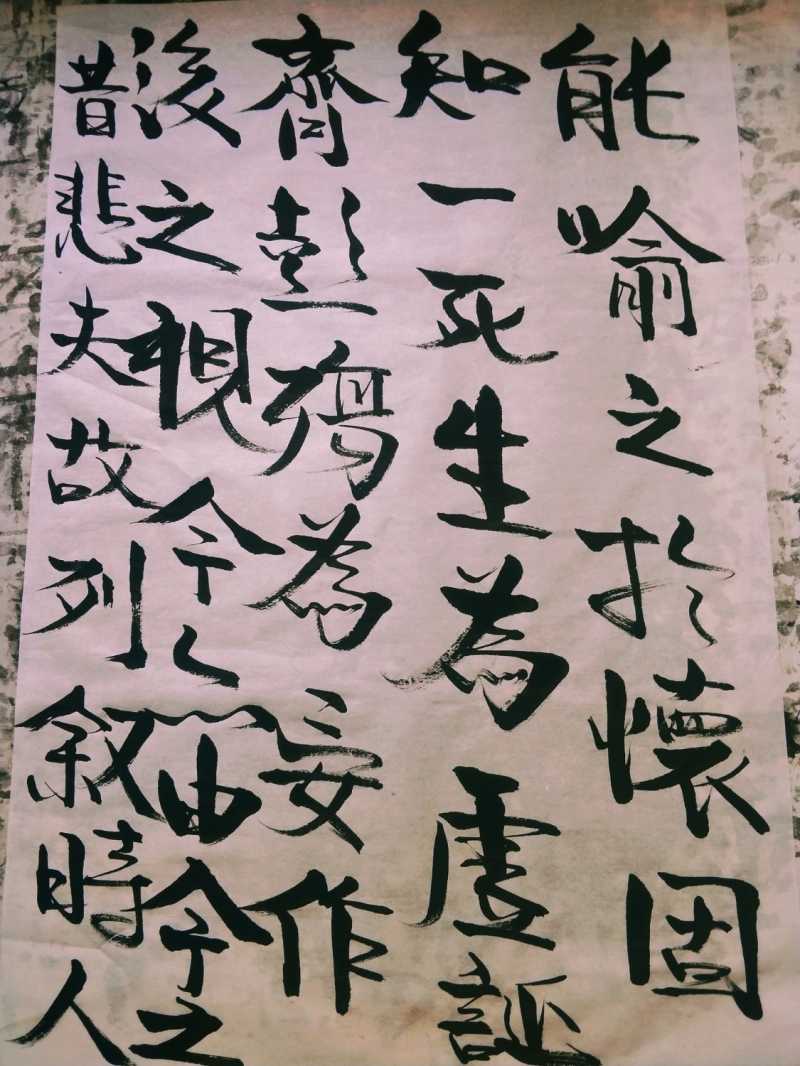 能喻之於懷固
知一死生為虛誕
齊彭殤為妄作
後之視今亦由今之
昔悲夫故列叙時人